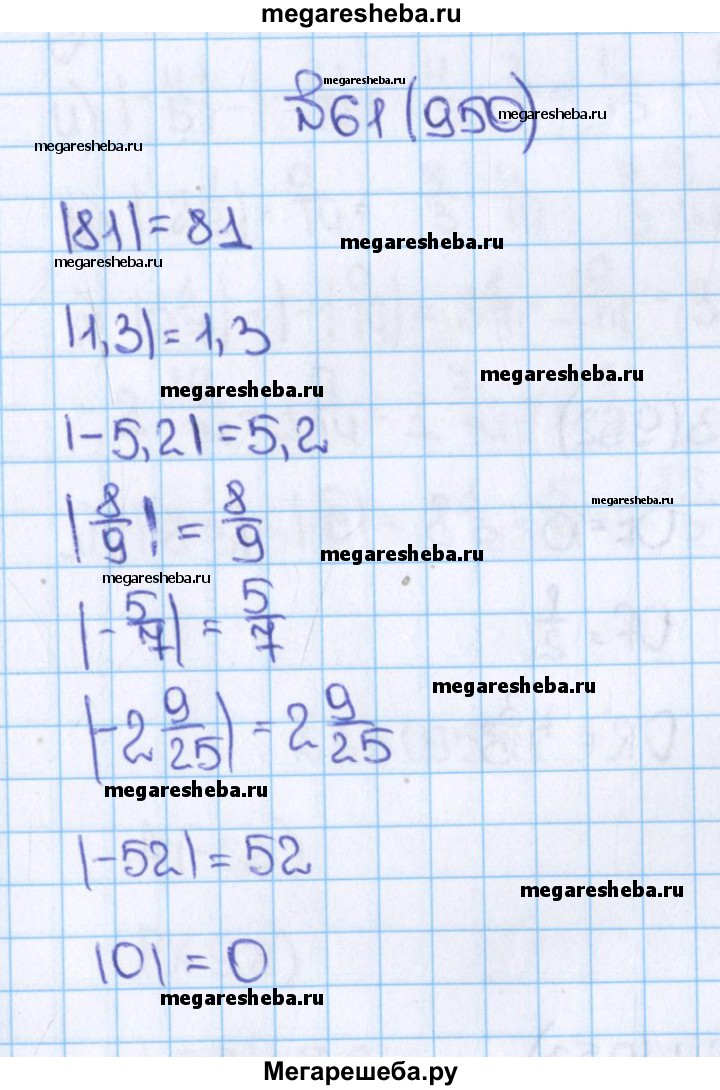 megaresheba.ru
megaresheba.ru
№61 (950)
megaresheba.ru
megaresheba.ru
|81| = 81
megaresheba.ru
megaresheba.ru
|1,3| = 1,3
megaresheba.ru
megaresheba.ru
|-5,2| = 5,2
|8/9| = 8/9
megaresheba.ru
megaresheba.ru
megaresheba.ru
|-5/7| = 5/7
megaresheba.ru
|-2 9/25| = 2 9/25
megaresheba.ru
|-52| = 52
megaresheba.ru
|0| = 0
megaresheba.ru
Мегарешеба.ру